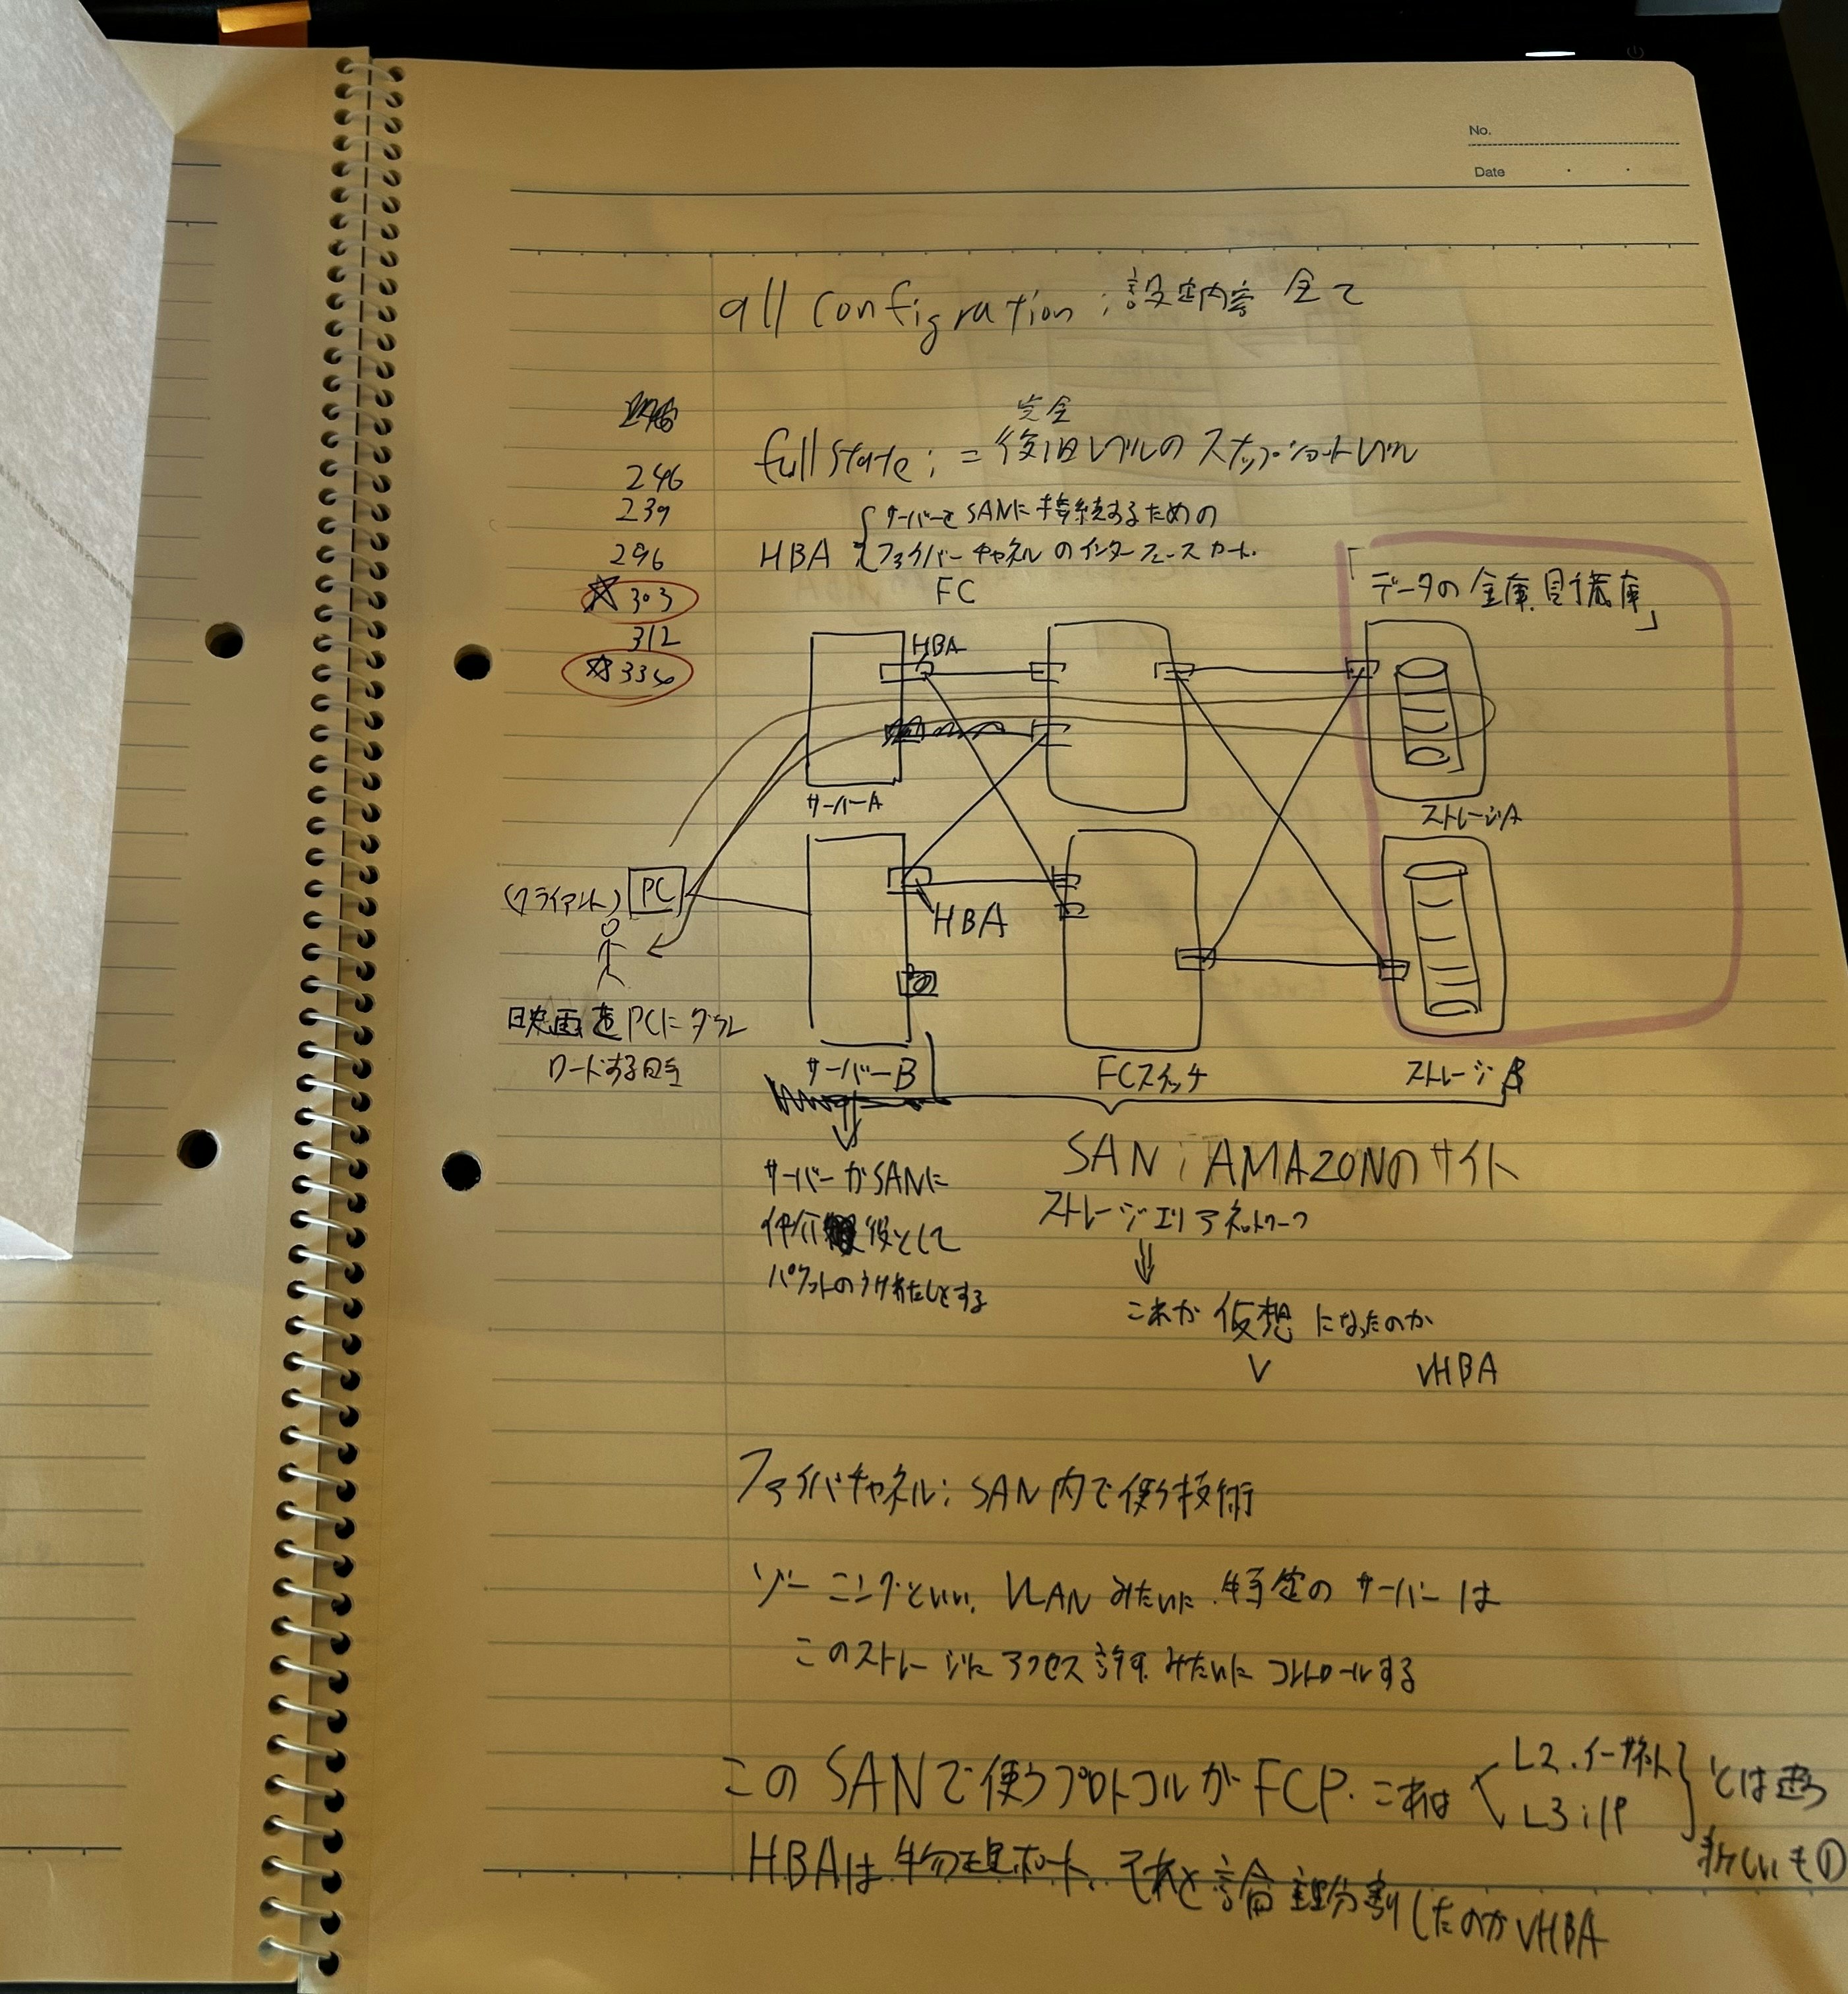 No.
Date
all configration ; 設定内容 全て
246
239
296
303
312
334
完全
full state ; = 復旧レベルのスナップショットレベル
サーバーをSANに接続するための
HBA ファイバーチャネルのインターフェースカード.
FC
「データの金庫、貯蔵庫」
HBA
サーバーA
ストレージA
(クライアント) PC
HBA
映画をPCにダウン
ロードする目的
サーバーB
FCスイッチ
ストレージB
SAN ; AMAZONのサイト
ストレージエリアネットワーク
⇓
これが仮想になったのが
V vHBA
サーバーがSANに
仲介役として
パケットのうけわたしをする
ファイバチャネル ; SAN内で使う技術
ゾーニングといい、VLANみたいに、特定のサーバーは
このストレージにアクセス許可、みたいにコントロールする
このSANで使うプロトコルがFCP. これは
L2 . イーサネット
L3 ; IP
とは違う
新しいもの
HBAは物理ポート、それを論理分割したのがvHBA